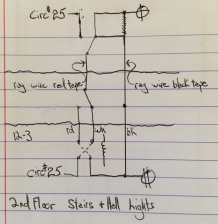 Circ# 25
ray wire red tape
ray wire black tape
12-3
rd
wh
blk
Circ# 25
2nd Floor Stairs + Hall Lights